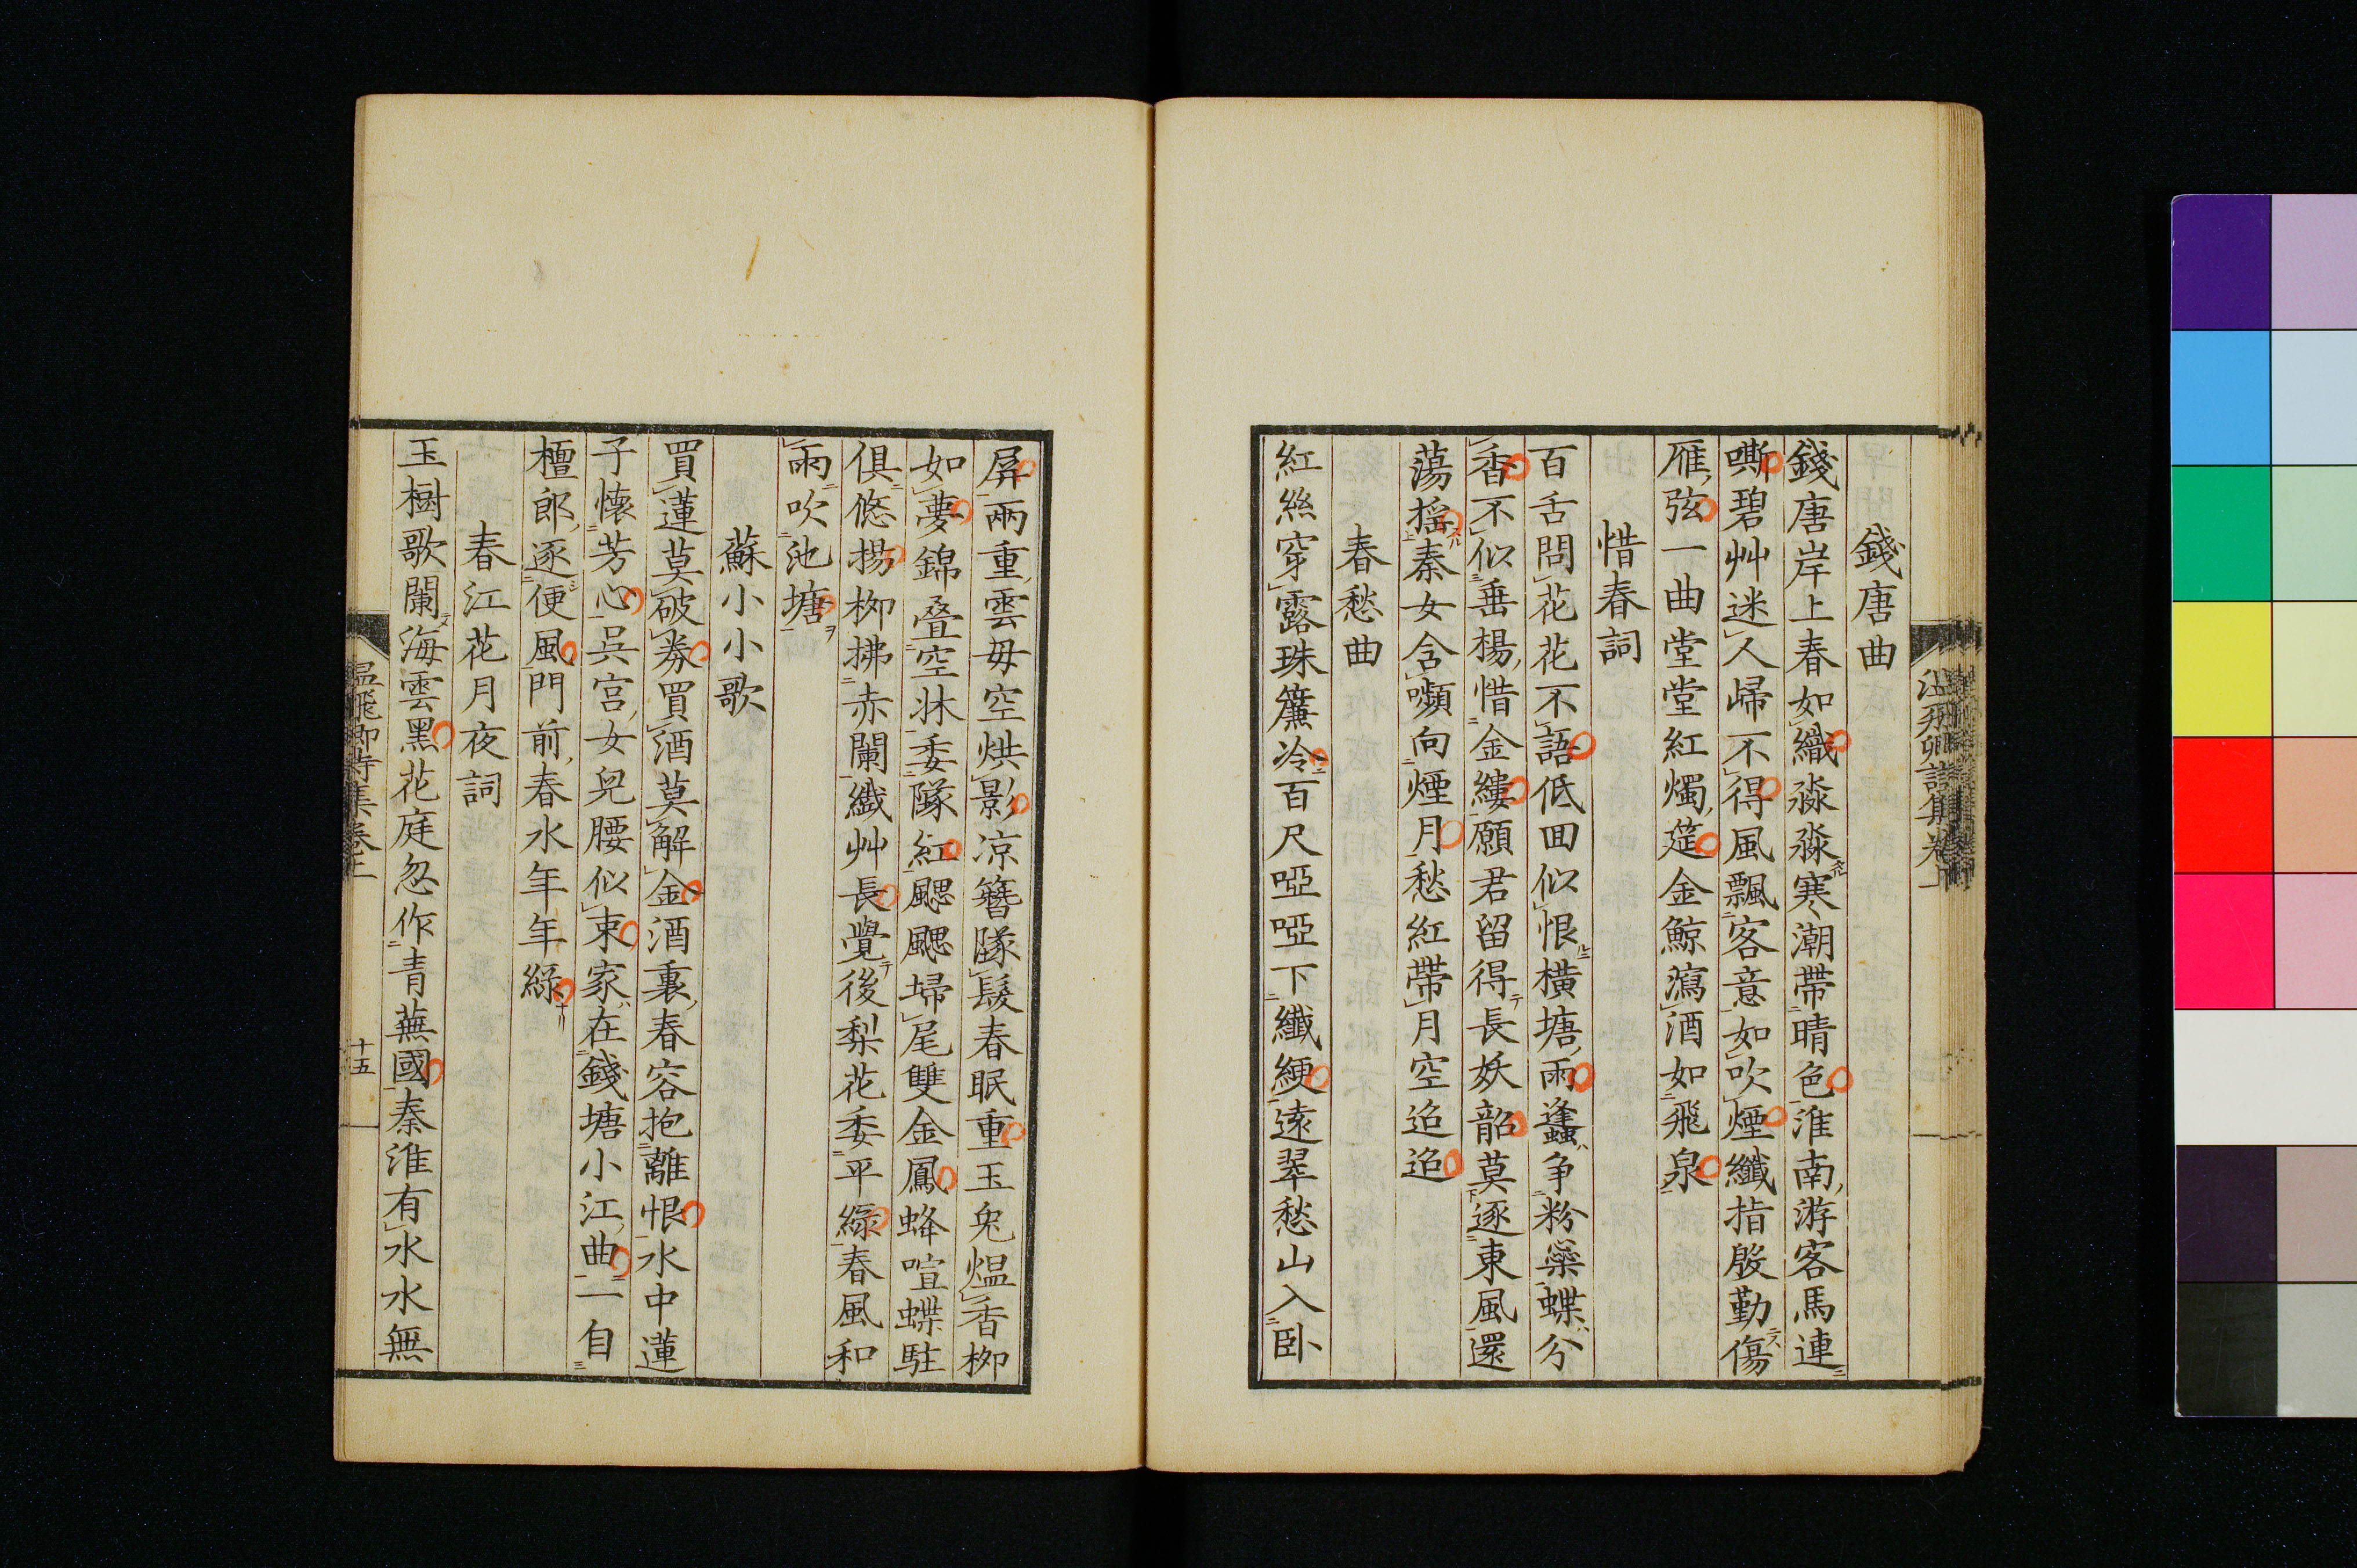 錢唐曲
錢唐岸上春如織淼淼寒潮帶晴色淮南游客馬連
嘶碧艸迷人歸不得風飄客意如吹煙纖指殷勤傷
雁弦一曲堂堂紅燭筵金鯨瀉酒如飛泉
惜春詞
百舌問花花不語低回似恨橫塘雨蜂爭粉蘂蝶分
香不似垂楊惜金縷願君留得長妖韶莫逐東風還
蕩搖秦女含嚬向煙月愁紅帶月空迢迢
春愁曲
紅絲穿露珠簾冷百尺啞啞下纖綆遠翠愁山入卧
屏兩重雲母空烘影凉簪墜髮春眠重玉兔熅香柳
如夢錦疊空牀委墜紅颸颸埽尾雙金鳳蜂喧蝶駐
俱悠揚柳拂赤闌纖艸長覺後梨花委平綠春風和
雨吹池塘
蘇小小歌
買蓮莫破券買酒莫解金酒裏春容抱離恨水中蓮
子懷芳心吳宮女兒腰似束家在錢塘小江曲一自
檀郎逐便風門前春水年年綠
春江花月夜詞
玉樹歌闌海雲黑花庭忽作青蕪國秦淮有水水無
溫飛卿詩集卷上
十五